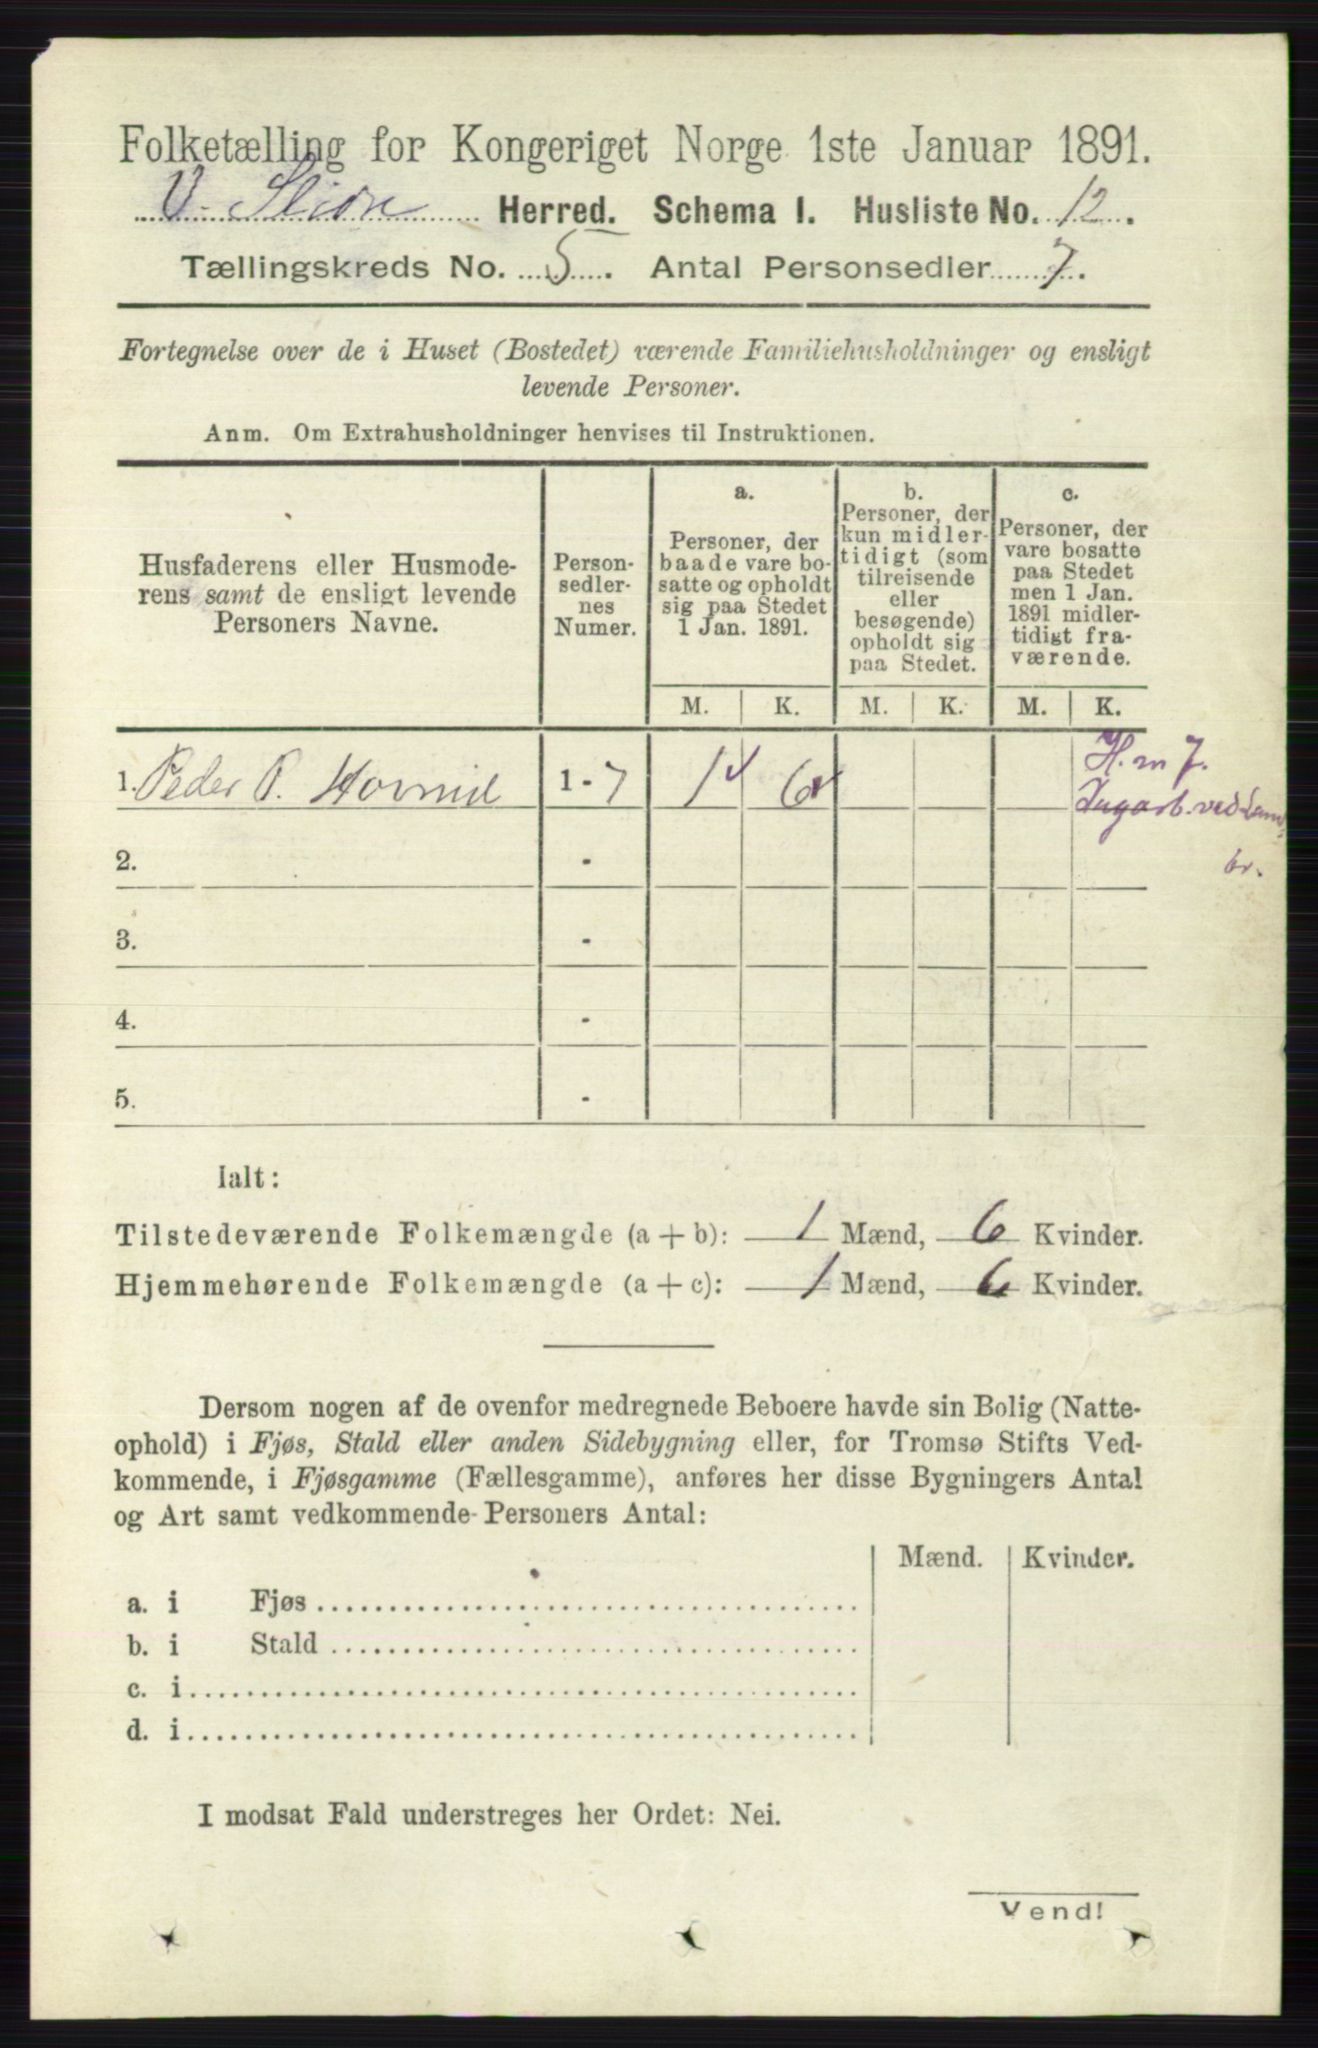 Folketælling for Kongeriget Norge 1ste Januar 1891.
V. Slidre Herred. Schema I. Husliste No. 12.
Tællingskreds No. 5. Antal Personsedler 7.
Fortegnelse over de i Huset (Bostedet) værende Familiehusholdninger og ensligt
levende Personer.
Anm. Om Extrahusholdninger henvises til Instruktionen.
Husfaderens eller Husmode-
rens samt de ensligt levende
Personers Navne.
Person-
sedler-
nes
Numer.
a.
Personer, der
baade vare bo-
satte og opholdt
sig paa Stedet
1 Jan. 1891.
b.
Personer, der
kun midler-
tidigt (som
tilreisende
eller
besøgende)
opholdt sig
paa Stedet.
c.
Personer, der
vare bosatte
paa Stedet
men 1 Jan.
1891 midler-
tidigt fra-
værende.
M. K. M. K. M. K.
1. Peder P. 1 - 7 1 6
H. m 7.
ved
br.
2. -
3. -
4. -
5. -
Ialt:
Tilstedeværende Folkemængde (a + b): 1 Mænd, 6 Kvinder.
Hjemmehørende Folkemængde (a + c): 1 Mænd, 6 Kvinder.
Dersom nogen af de ovenfor medregnede Beboere havde sin Bolig (Natte-
ophold) i Fjøs, Stald eller anden Sidebygning eller, for Tromsø Stifts Ved-
kommende, i Fjøsgamme (Fællesgamme), anføres her disse Bygningers Antal
og Art samt vedkommende Personers Antal:
Mænd. Kvinder.
a. i Fjøs
b. i Stald
c. i
d. i
I modsat Fald understreges her Ordet: Nei.
Vend!